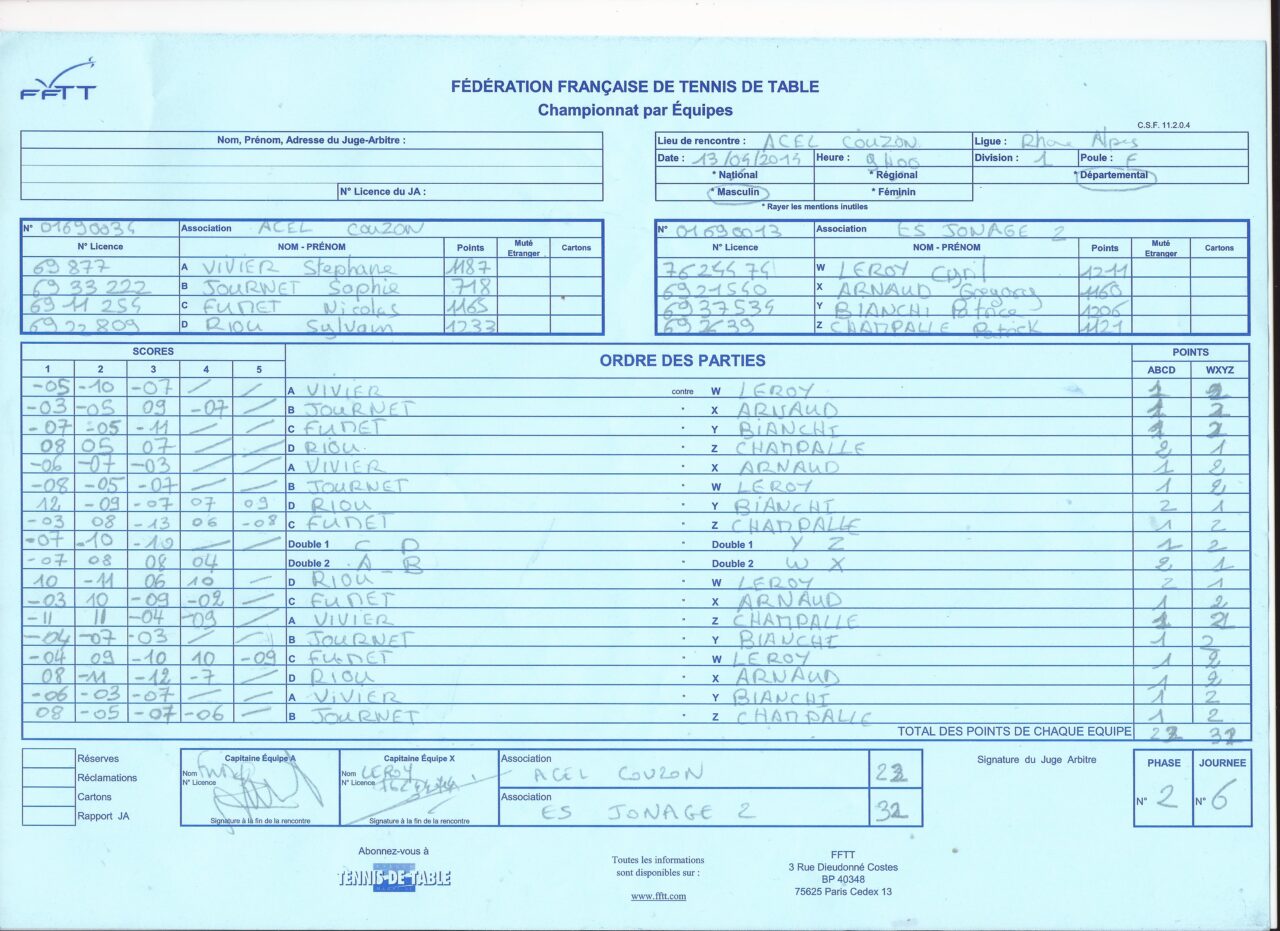 FFTT
FÉDÉRATION FRANÇAISE DE TENNIS DE TABLE
Championnat par Équipes
C.S.F. 11.2.0.4
Nom, Prénom, Adresse du Juge-Arbitre :
N° Licence du JA :
Lieu de rencontre : ACEL COUZON Ligue : Rhone Alpes
Date : 13/04/2014 Heure : 9H00 Division : 1 Poule : F
* National * Régional * Départemental
* Masculin * Féminin
* Rayer les mentions inutiles
N° 01690034 Association ACEL COUZON
N° Licence NOM - PRÉNOM Points Muté Etranger Cartons
69 877 A VIVIER Stephane 1187
69 33 222 B JOURNET Sophie 718
69 11 254 C FUMET Nicolas 1165
69 22 809 D RIOU Sylvain 1233
N° 01690013 Association ES JONAGE 2
N° Licence NOM - PRÉNOM Points Muté Etranger Cartons
7624474 W LEROY Cyril 1211
6921540 X ARNAUD Gregorry 1160
6937534 Y BIANCHI Patrice 1206
692639 Z CHAMPALLE Patrick 1121
SCORES ORDRE DES PARTIES POINTS
1 2 3 4 5 ABCD WXYZ
-05 -10 -07 / / A VIVIER contre W LEROY 1 2
-03 -05 09 -07 / B JOURNET " X ARNAUD 1 2
-07 -05 -11 / / C FUMET " Y BIANCHI 1 2
08 05 07 / / D RIOU " Z CHAMPALLE 2 1
-06 -07 -03 / / A VIVIER " X ARNAUD 1 2
-08 -05 -07 / / B JOURNET " W LEROY 1 2
12 -09 -07 07 09 D RIOU " Y BIANCHI 2 1
-03 08 -13 06 -08 C FUMET " Z CHAMPALLE 1 2
-07 -10 -10 / / Double 1 C D " Double 1 Y Z 1 2
-07 08 08 04 Double 2 A B " Double 2 W X 2 1
10 -11 06 10 / D RIOU " W LEROY 2 1
-03 10 -09 -02 / C FUMET " X ARNAUD 1 2
-11 11 -04 -09 / A VIVIER " Z CHAMPALLE 1 2
-04 -07 -03 / / B JOURNET " Y BIANCHI 1 2
-04 09 -10 10 -09 C FUMET " W LEROY 1 2
08 -11 -12 -7 / D RIOU " X ARNAUD 1 2
-06 -03 -07 / / A VIVIER " Y BIANCHI 1 2
08 -05 -07 -06 / B JOURNET " Z CHAMPALLE 1 2
TOTAL DES POINTS DE CHAQUE EQUIPE 22 32
Réserves
Réclamations
Cartons
Rapport JA
Capitaine Équipe A
Nom
N° Licence
Signature à la fin de la rencontre
Capitaine Équipe X
Nom LEROY
N° Licence 7624474
Signature à la fin de la rencontre
Association ACEL COUZON 22
Association ES JONAGE 2 32
Signature du Juge Arbitre
PHASE JOURNEE
N° 2 N° 6
Abonnez-vous à
TENNIS-DE-TABLE
Toutes les informations
sont disponibles sur :
www.fftt.com
FFTT
3 Rue Dieudonné Costes
BP 40348
75625 Paris Cedex 13